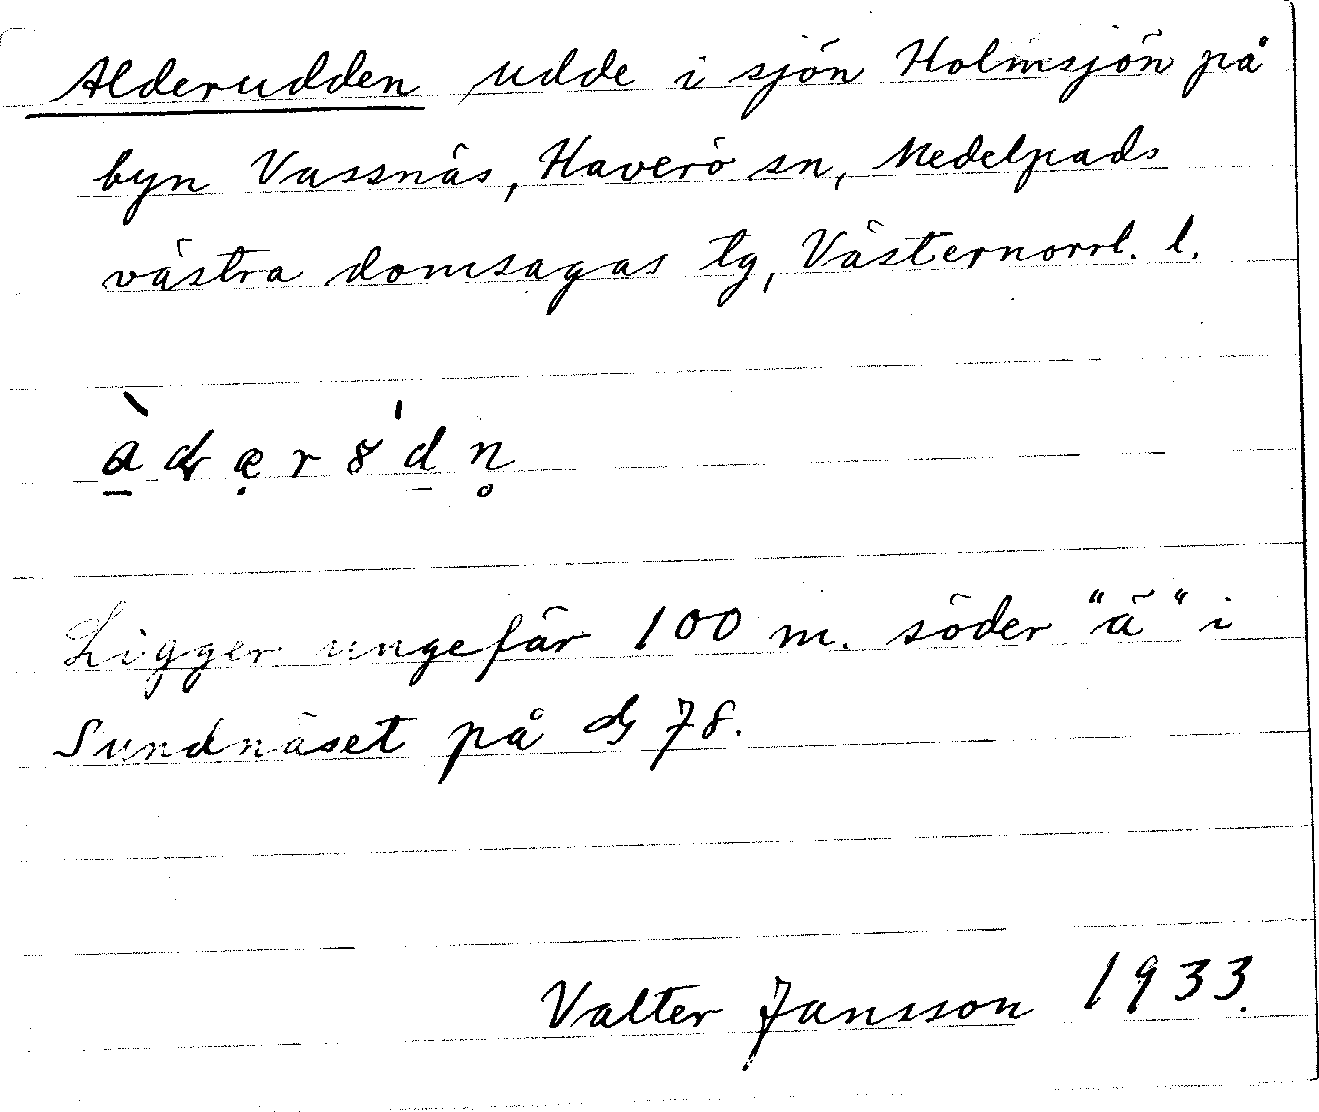 Alderudden udde i sjön Holmsjön på
byn Vassnäs, Haverö sn, Medelpads
västra domsagas tg, Västernorrl. l.
Ligger ungefär 100 m. söder "ä" i
Sundnäset på 78.
Valter Jansson 1933.